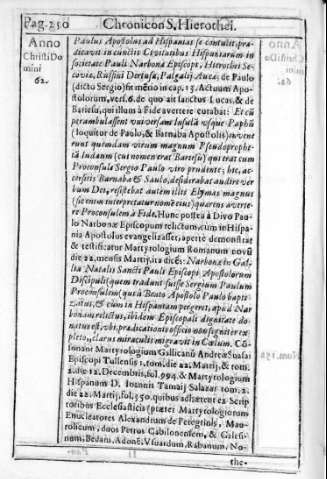 Pag. 250 Chronicon S. Hierothei.
Anno Christi Domini 62.
Paulus Apostolus ad Hispanias se contulit, præ-
dicavit in cunctis Civitatibus Hispaniarum in
societate Pauli Narbonæ Episcopi, Hierothei Se-
coviæ, Dertusæ, de Paulo
(dicto Sergio) fit mētio in cap. 13. Actuum Apo-
stolorum, vers. 6. de quo ait sanctus Lucas, & de
Bariesu, qui illum à Fide avertere curabat: Et cū
perambulassent universam Insulā usque Paphū
(loquitur de Paulo, & Barnaba Apostolis) invene
runt quendam virum magnum Pseudopróphe-
tā Iudæum (cui nomen erat Bariesu) qui erat cum
Proconsule Sergio Paulo viro prudente; hic, ac-
cersitis Barnaba & Saulo, desiderabat audire ver
bum Dei, resistebat autem illis Elymas magnus
(sic enim interpretatur nomē eius) quærens averte-
re Proconsulem à Fide. Hunc posteà à Divo Pau-
lo Narbonæ Episcopum relictum, cum in Hispa-
nia Apostolus evangelizasset, apertè demonstrat
& testificatur Martyrologium Romanum novū
die 22. mensis Martij, ita dicēs: Narbonæ in Gal-
lia Natalis Sancti Pauli Episcopi Apostolorum
Discipuli (quem tradunt fuisse Sergium Paulum
Proconsulem) qui à Beato Apostolo Paulo bapti-
zatus, & cum in Hispaniam pergeret, apud Nar
bonam relictus, ibidem Episcopali dignitate do-
natus est, ubi prædicationis officio non segniter ex-
pleto, clarus miraculis migravit in Cœlum. Cō-
sonant Martyrologium Gallicanū Andreæ Susai
Episcopi Tullensis 1. tom. die 22. Martij, & tom.
2. die 12. Decembris, fol. 994. & Martyrologium
Hispanum D. Ioannis Tamaij Salazar tom. 2.
die 22. Martij, fol. 350. quibus adhæret ex Scrip
toribus Ecclesiasticis (præter Martyrologiorum
Enucleatores Alexandrum de Peregrinis, Mau-
rolicum, duos Petros Cabilonensem, & Galesi-
num, Bedam, Adonē, Usuardum, Rabanum, No-
the-